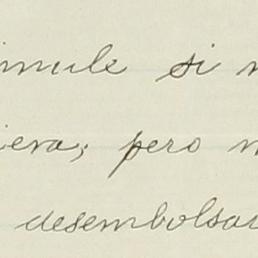 imule si
iera; pero
desembolsar